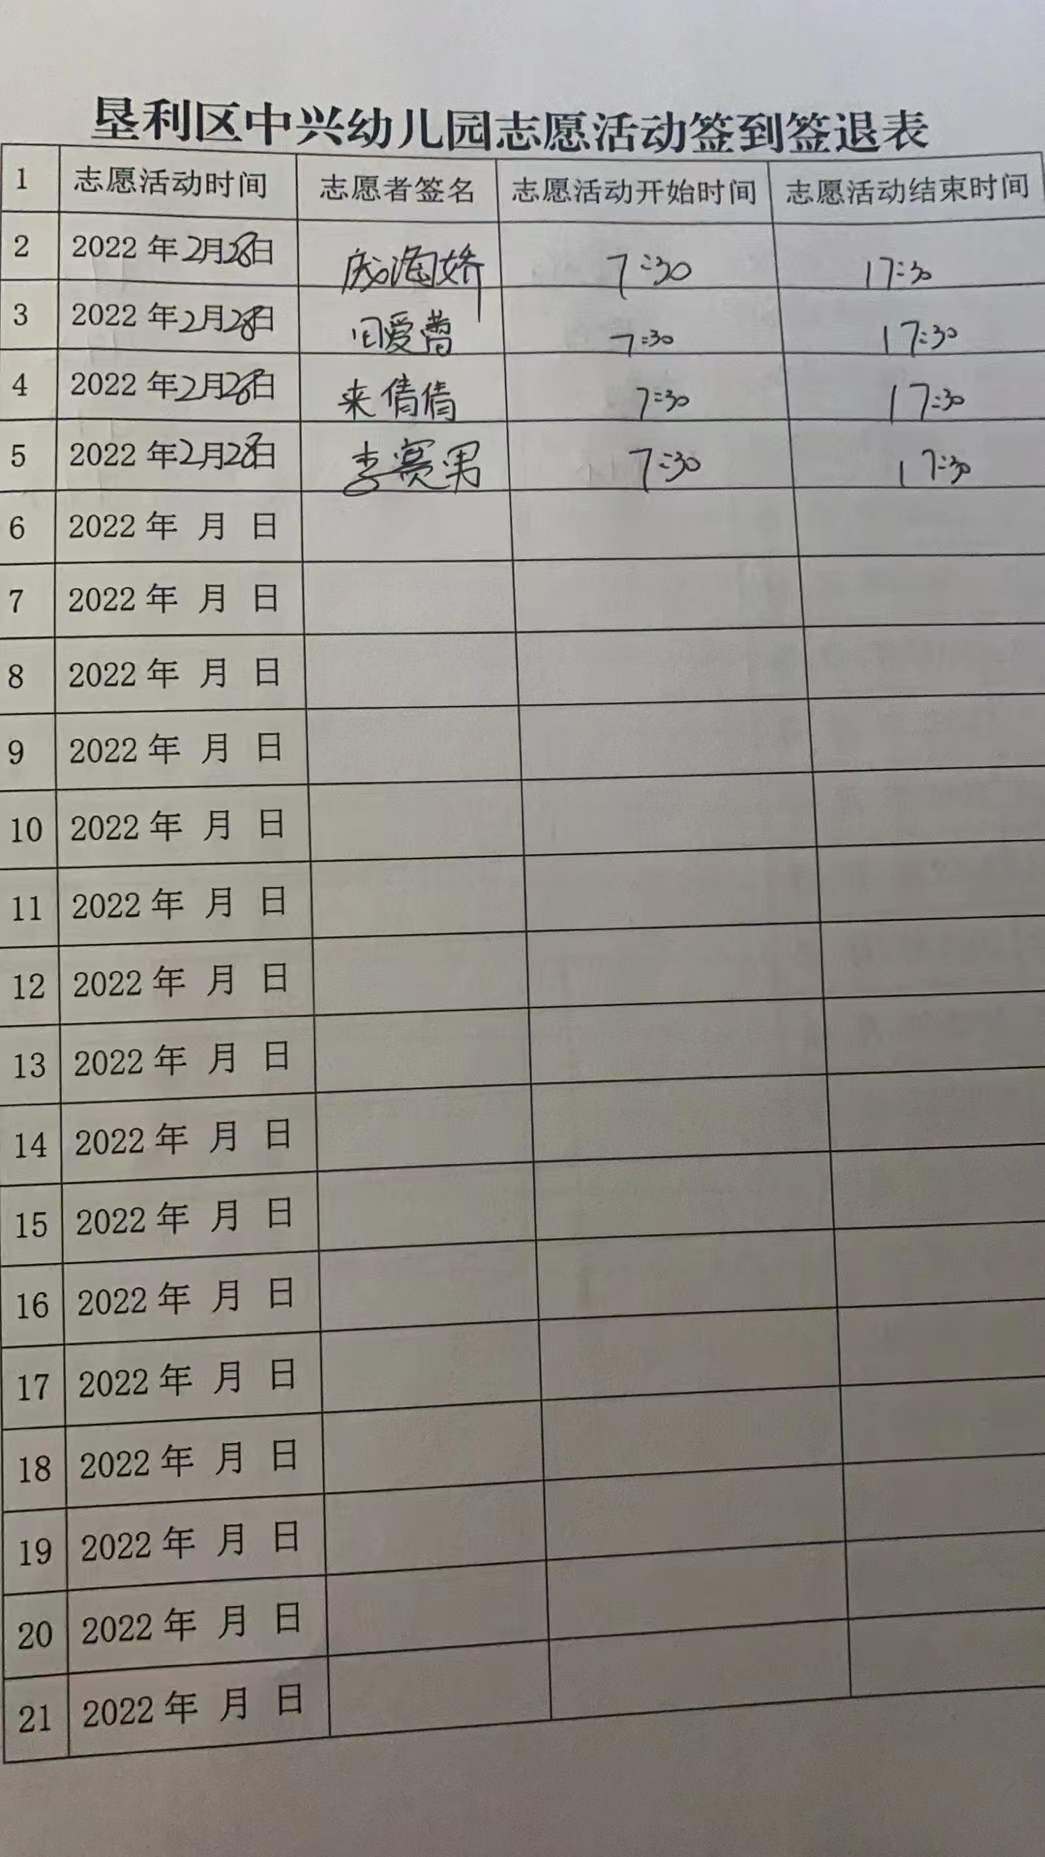 垦利区中兴幼儿园志愿活动签到签退表
1 志愿活动时间 志愿者签名 志愿活动开始时间 志愿活动结束时间
2 2022年2月28日 7:30 17:30
3 2022年2月28日 爱 7:30 17:30
4 2022年2月28日 来倩倩 7:30 17:30
5 2022年2月28日 李赛男 7:30 17:30
6 2022年 月 日
7 2022年 月 日
8 2022年 月 日
9 2022年 月 日
10 2022年 月 日
11 2022年 月 日
12 2022年 月 日
13 2022年 月 日
14 2022年 月 日
15 2022年 月 日
16 2022年 月 日
17 2022年 月 日
18 2022年 月 日
19 2022年 月 日
20 2022年 月 日
21 2022年 月 日